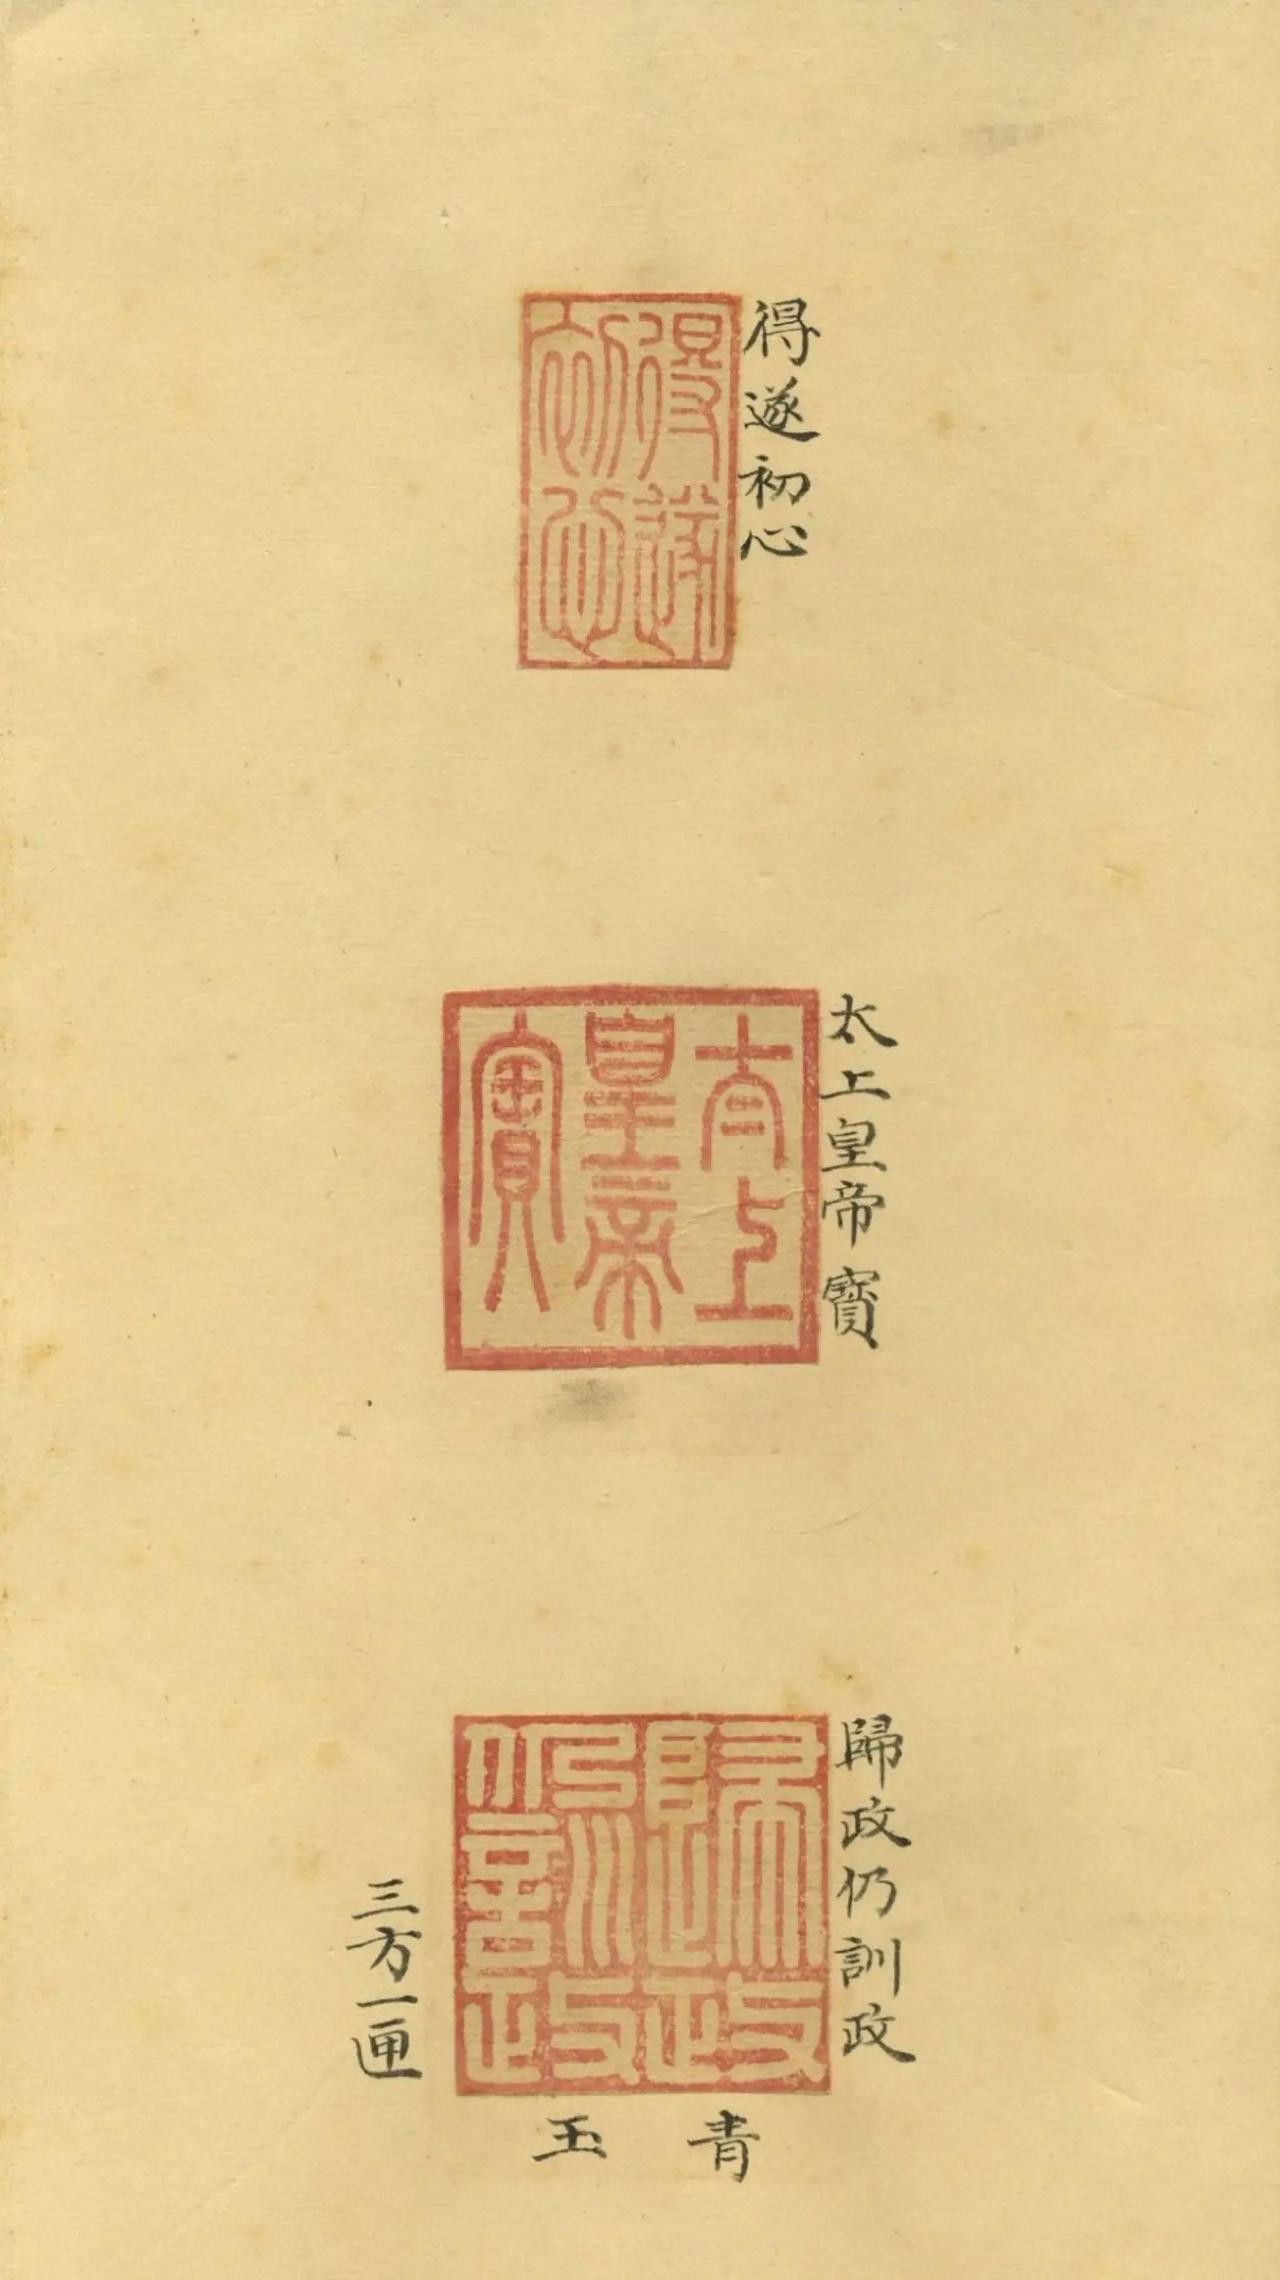 得遂初心
得遂初心
太上皇帝寶
太上皇帝寶
歸政仍訓政
歸政仍訓政
三方一匣
青玉